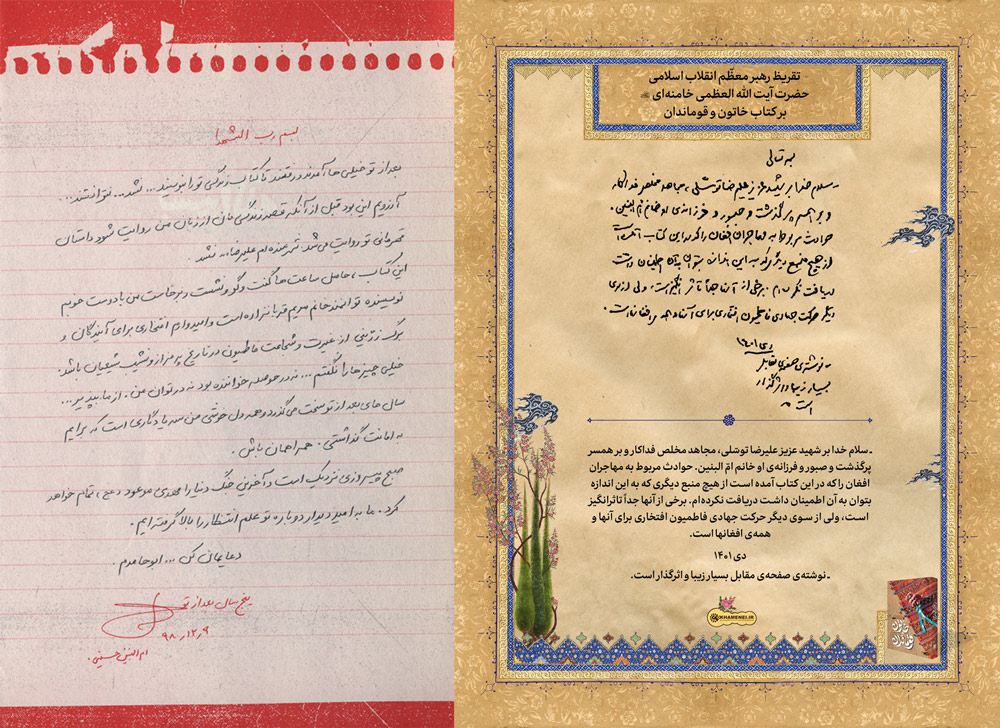 تقریظ رهبر معظّم انقلاب اسلامی
حضرت آیت الله العظمی خامنه‌ای
بر کتاب خاتون و قوماندان
بسمه تعالی
ـ سلام خدا بر شهید عزیز علیرضا توسّلی، مجاهد مخلص فداکار
و بر همسر پرگذشت و صبور و فرزانه‌ی او خانم امّ البنین.
حوادث مربوط به مهاجران افغان را که در این کتاب آمده است
از هیچ منبع دیگری که به این اندازه بتوان به آن اطمینان داشت
دریافت نکرده‌ام. برخی از آنها جداً تاثرانگیز است، ولی از سوی
دیگر حرکت جهادی فاطمیون افتخاری برای آنها و همه‌ی افغانها است.
دی ۱۴۰۱
ـ نوشته‌ی صفحه‌ی مقابل
بسیار زیبا و اثرگذار
است
ـ سلام خدا بر شهید عزیز علیرضا توسّلی، مجاهد مخلص فداکار و بر همسر
پرگذشت و صبور و فرزانه‌ی او خانم امّ البنین. حوادث مربوط به مهاجران
افغان را که در این کتاب آمده است از هیچ منبع دیگری که به این اندازه
بتوان به آن اطمینان داشت دریافت نکرده‌ام. برخی از آنها جداً تاثرانگیز
است، ولی از سوی دیگر حرکت جهادی فاطمیون افتخاری برای آنها و
همه‌ی افغانها است.
دی ۱۴۰۱
ـ نوشته‌ی صفحه‌ی مقابل بسیار زیبا و اثرگذار است.
KHAMENEI.IR
خاتون
قوماندان
بسم رب الشهدا
بعد از تو خیلی ها آمدند و رفتند تا کتاب زندگی تو را بنویسند... نشد... نتوانستند...
آرزویم این بود قبل از آنکه قصه زندگی مان از زبان من روایت شود داستان
قهرمانی تو روایت می شد. شرمنده ام علیرضا، نشد.
این کتاب، حاصل ساعت ها گفت و گو و نشست و برخاست من با دوست خوبم
نویسنده توانمند خانم مریم قربانزاده است و امیدوارم افتخاری برای آیندگان و
برگ زرینی از غیرت و شجاعت فاطمیون در تاریخ پر فراز و نشیب شیعیان باشد.
خیلی چیزها را نگفتم... نه در حوصله خواننده بود نه در توان من. از ما بپذیر...
سال های بعد از تو سخت می گذرد و همه دل خوشی من سه یادگاری است که برایم
به امانت گذاشتی. همراهمان باش.
صبح پیروزی نزدیک است و آخرین جنگ دنیا را مهدی موعود (عج)، تمام خواهد
کرد. ما به امید دیدار دوباره تو علم انتظار را بالا گرفته ایم.
دعایمان کن... ابوحامدم.
پنج سال بعد از تو
۹۸،۱۲،۶
ام البنین حسینی.